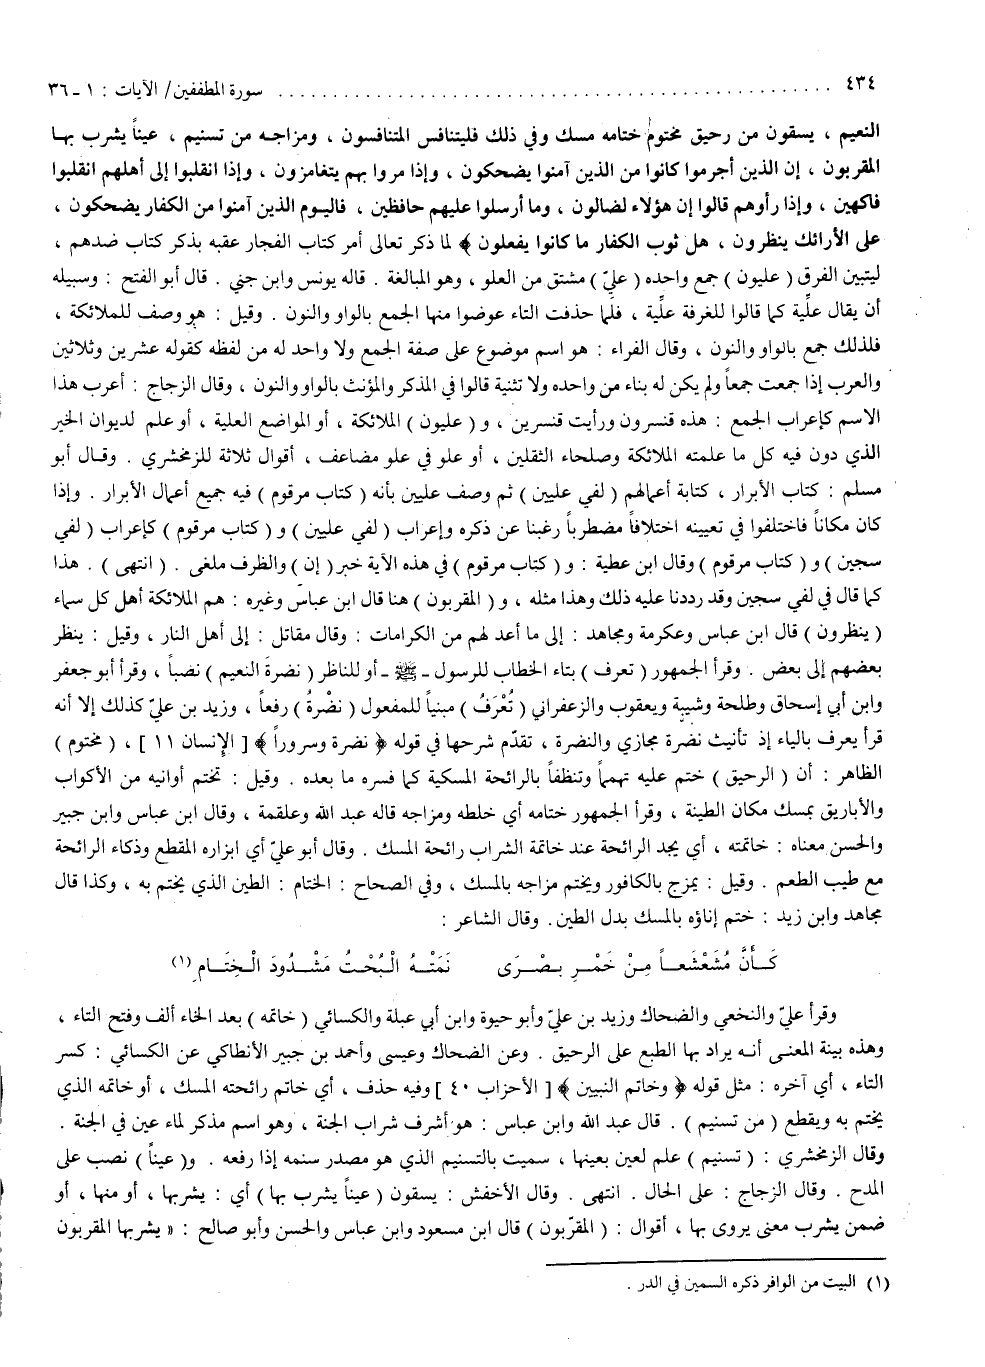 ٤٣٤ ........................................ سورة المطففين/ الآيات : ١ ـ ٣٦
النعيم ، يسقون من رحيق مختوم ختامه مسك وفي ذلك فليتنافس المتنافسون ، ومزاجه من تسنيم ، عيناً يشرب بها
المقربون ، إن الذين أجرموا كانوا من الذين آمنوا يضحكون ، وإذا مروا بهم يتغامزون ، وإذا انقلبوا إلى أهلهم انقلبوا
فاكهين ، وإذا رأوهم قالوا إن هؤلاء لضالون ، وما أرسلوا عليهم حافظين ، فاليوم الذين آمنوا من الكفار يضحكون ،
على الأرائك ينظرون ، هل ثوب الكفار ما كانوا يفعلون ﴾ لما ذكر تعالى أمر كتاب الفجار عقبه بذكر كتاب ضدهم ،
ليتبين الفرق ( عليون ) جمع واحده ( عليّ ) مشتق من العلو ، وهو المبالغة . قاله يونس وابن جني . قال أبو الفتح : وسبيله
أن يقال علّية كما قالوا للغرفة علّية ، فلما حذفت التاء عوضوا منها الجمع بالواو والنون . وقيل : هو وصف للملائكة ،
فلذلك جمع بالواو والنون ، وقال الفراء : هو اسم موضوع على صفة الجمع ولا واحد له من لفظه كقوله عشرين وثلاثين
والعرب إذا جمعت جمعاً ولم يكن له بناء من واحده ولا تثنية قالوا في المذكر والمؤنث بالواو والنون ، وقال الزجاج : أعرب هذا
الاسم كإعراب الجمع : هذه قنسرون ورأيت قنسرين ، و ( عليون ) الملائكة ، أو المواضع العلية ، أو علم لديوان الخير
الذي دون فيه كل ما علمته الملائكة وصلحاء الثقلين ، أو علو في علو مضاعف ، أقوال ثلاثة للزمخشري . وقال أبو
مسلم : كتاب الأبرار ، كتابة أعمالهم ( لفي عليين ) ثم وصف عليين بأنه ( كتاب مرقوم ) فيه جميع أعمال الأبرار . وإذا
كان مكاناً فاختلفوا في تعيينه اختلافاً مضطرباً رغبنا عن ذكره وإعراب ( لفي عليين ) و ( كتاب مرقوم ) كإعراب ( لفي
سجين ) و ( كتاب مرقوم ) وقال ابن عطية : و ( كتاب مرقوم ) في هذه الآية خبر ( إن ) والظرف ملغى . ( انتهى ) . هذا
كما قال في لفي سجين وقد رددنا عليه ذلك وهذا مثله ، و ( المقربون ) هنا قال ابن عباس وغيره : هم الملائكة أهل كل سماء
( ينظرون ) قال ابن عباس وعكرمة ومجاهد : إلى ما أعد لهم من الكرامات : وقال مقاتل : إلى أهل النار ، وقيل : ينظر
بعضهم إلى بعض . وقرأ الجمهور ( تعرف ) بتاء الخطاب للرسول ـ ﷺ ـ أو للناظر ( نضرةَ النعيم ) نصباً ، وقرأ أبو جعفر
وابن أبي إسحاق وطلحة وشيبة ويعقوب والزعفراني ( تُعْرَفُ ) مبنياً للمفعول ( نضْرةُ ) رفعاً ، وزيد بن عليّ كذلك إلا أنه
قرأ يعرف بالياء إذ تأنيث نضرة مجازي والنضرة ، تقدّم شرحها في قوله ﴿ نضرة وسروراً ﴾ [ الإنسان ١١ ] ، ( مختوم )
الظاهر : أن ( الرحيق ) ختم عليه تهمماً وتنظفاً بالرائحة المسكية كما فسره ما بعده . وقيل : تختم أوانيه من الأكواب
والأباريق بمسك مكان الطينة ، وقرأ الجمهور ختامه أي خلطه ومزاجه قاله عبد الله وعلقمة ، وقال ابن عباس وابن جبير
والحسن معناه : خاتمته ، أي يجد الرائحة عند خاتمة الشراب رائحة المسك . وقال أبو عليّ أي ابزاره المقطع وذكاء الرائحة
مع طيب الطعم . وقيل : يمزج بالكافور ويختم مزاجه بالمسك ، وفي الصحاح : الختام : الطين الذي يختم به ، وكذا قال
مجاهد وابن زيد : ختم إناؤه بالمسك بدل الطين. وقال الشاعر :
كَـأَنَّ مُشَعْشَعـاً مِـنْ خَمْـرِ بـصْـرَى نَمَتْـهُ الْبُخْـتُ مَشْـدُودَ الْـخِتَـامِ (١)
وقرأ عليّ والنخعي والضحاك وزيد بن عليّ وأبو حيوة وابن أبي عبلة والكسائي ( خاتمه ) بعد الخاء ألف وفتح التاء ،
وهذه بينة المعنى أنه يراد بها الطبع على الرحيق . وعن الضحاك وعيسى وأحمد بن جبير الأنطاكي عن الكسائي : كسر
التاء ، أي آخره : مثل قوله ﴿ وخاتم النبيين ﴾ [ الأحزاب ٤٠ ] وفيه حذف ، أي خاتم رائحته المسك ، أو خاتمه الذي
يختم به ويقطع ( من تسنيم ) . قال عبد الله وابن عباس : هو أشرف شراب الجنة ، وهو اسم مذكر لماء عين في الجنة .
وقال الزمخشري : ( تسنيم ) علم لعين بعينها ، سميت بالتسنيم الذي هو مصدر سنمه إذا رفعه . و( عيناً ) نصب على
المدح . وقال الزجاج : على الحال . انتهى . وقال الأخفش : يسقون ( عيناً يشرب بها ) أي : يشربها ، أو منها ، أو
ضمن يشرب معنى يروى بها ، أقوال : ( المقرّبون ) قال ابن مسعود وابن عباس والحسن وأبو صالح : « يشربها المقربون
(١) البيت من الوافر ذكره السمين في الدر .